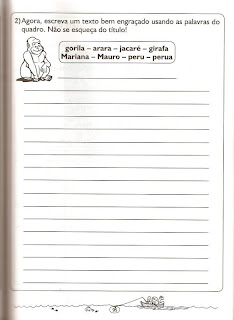 2) Agora, escreva um texto bem engraçado usando as palavras do
quadro. Não se esqueça do título!
gorila – arara – jacaré – girafa
Mariana – Mauro – peru – perua